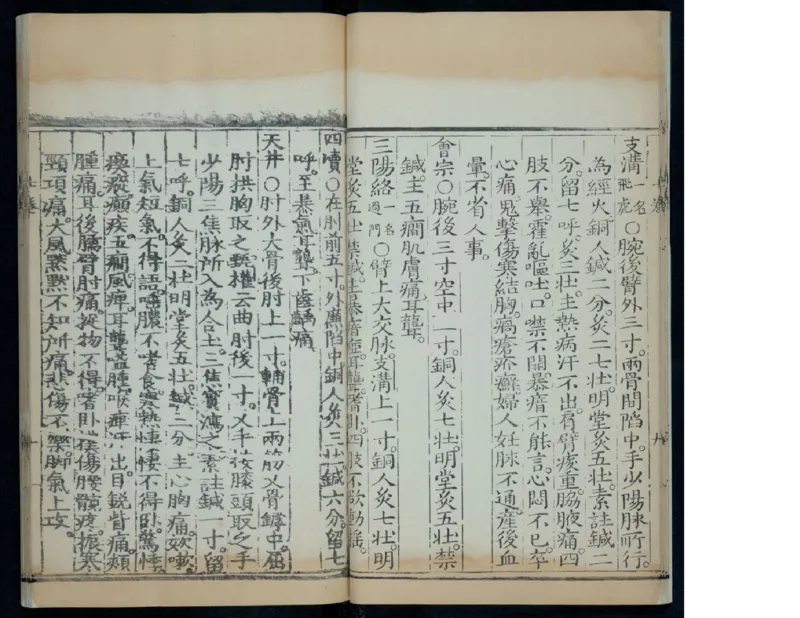 支溝一名飛虎○腕後臂外三寸。兩骨間陷中。手少陽脉所行。
為經火銅人鍼二分。灸二七壯明堂灸五壯。素註鍼二
分。留七呼。灸三壯。主熱病汗不出。肩臂痠重。脇腋痛。四
肢不舉。霍亂嘔吐。口噤不開。暴瘖不能言。心悶不已。卒
心痛。鬼擊傷寒結胸。瘑瘡疥癬。婦人妊脉不通。產後血
暈。不省人事。
會宗○腕後三寸空中一寸。銅人灸七壯。明堂灸五壯。禁
鍼。主五癇。肌膚痛。耳聾。
三陽絡一名過門○臂上大交脉。支溝上一寸。銅人灸七壯。明
堂灸五壯。禁鍼。主暴瘖瘂。耳聾。嗜卧。四肢不欲動搖。
四瀆○在肘前五寸。外廉陷中。銅人灸三壯。鍼六分。留七
呼。主暴氣耳聾。下齒齲痛
天井○肘外大骨後肘上一寸。輔骨上兩筋叉骨罅中。屈
肘拱胸取之。甄權云曲肘後一寸。叉手按膝頭取之。手
少陽三焦脉所入為合土。三焦實瀉之。素註鍼一寸。留
七呼。銅人灸三壯。明堂灸五壯。鍼三分。主心胸痛。欬嗽
上氣。短氣。不得語。唾膿。不嗜食。寒熱悽悽不得卧。驚悸
瘈瘲。癲疾。五癇。風痺。耳聾嗌腫。喉痺。汗出。目銳眥痛。頰
腫痛。耳後臑臂肘痛。捉物不得。嗜卧。撲傷腰髖疼。振寒
頸項痛。大風默默不知所痛。悲傷不樂。脚氣上攻。